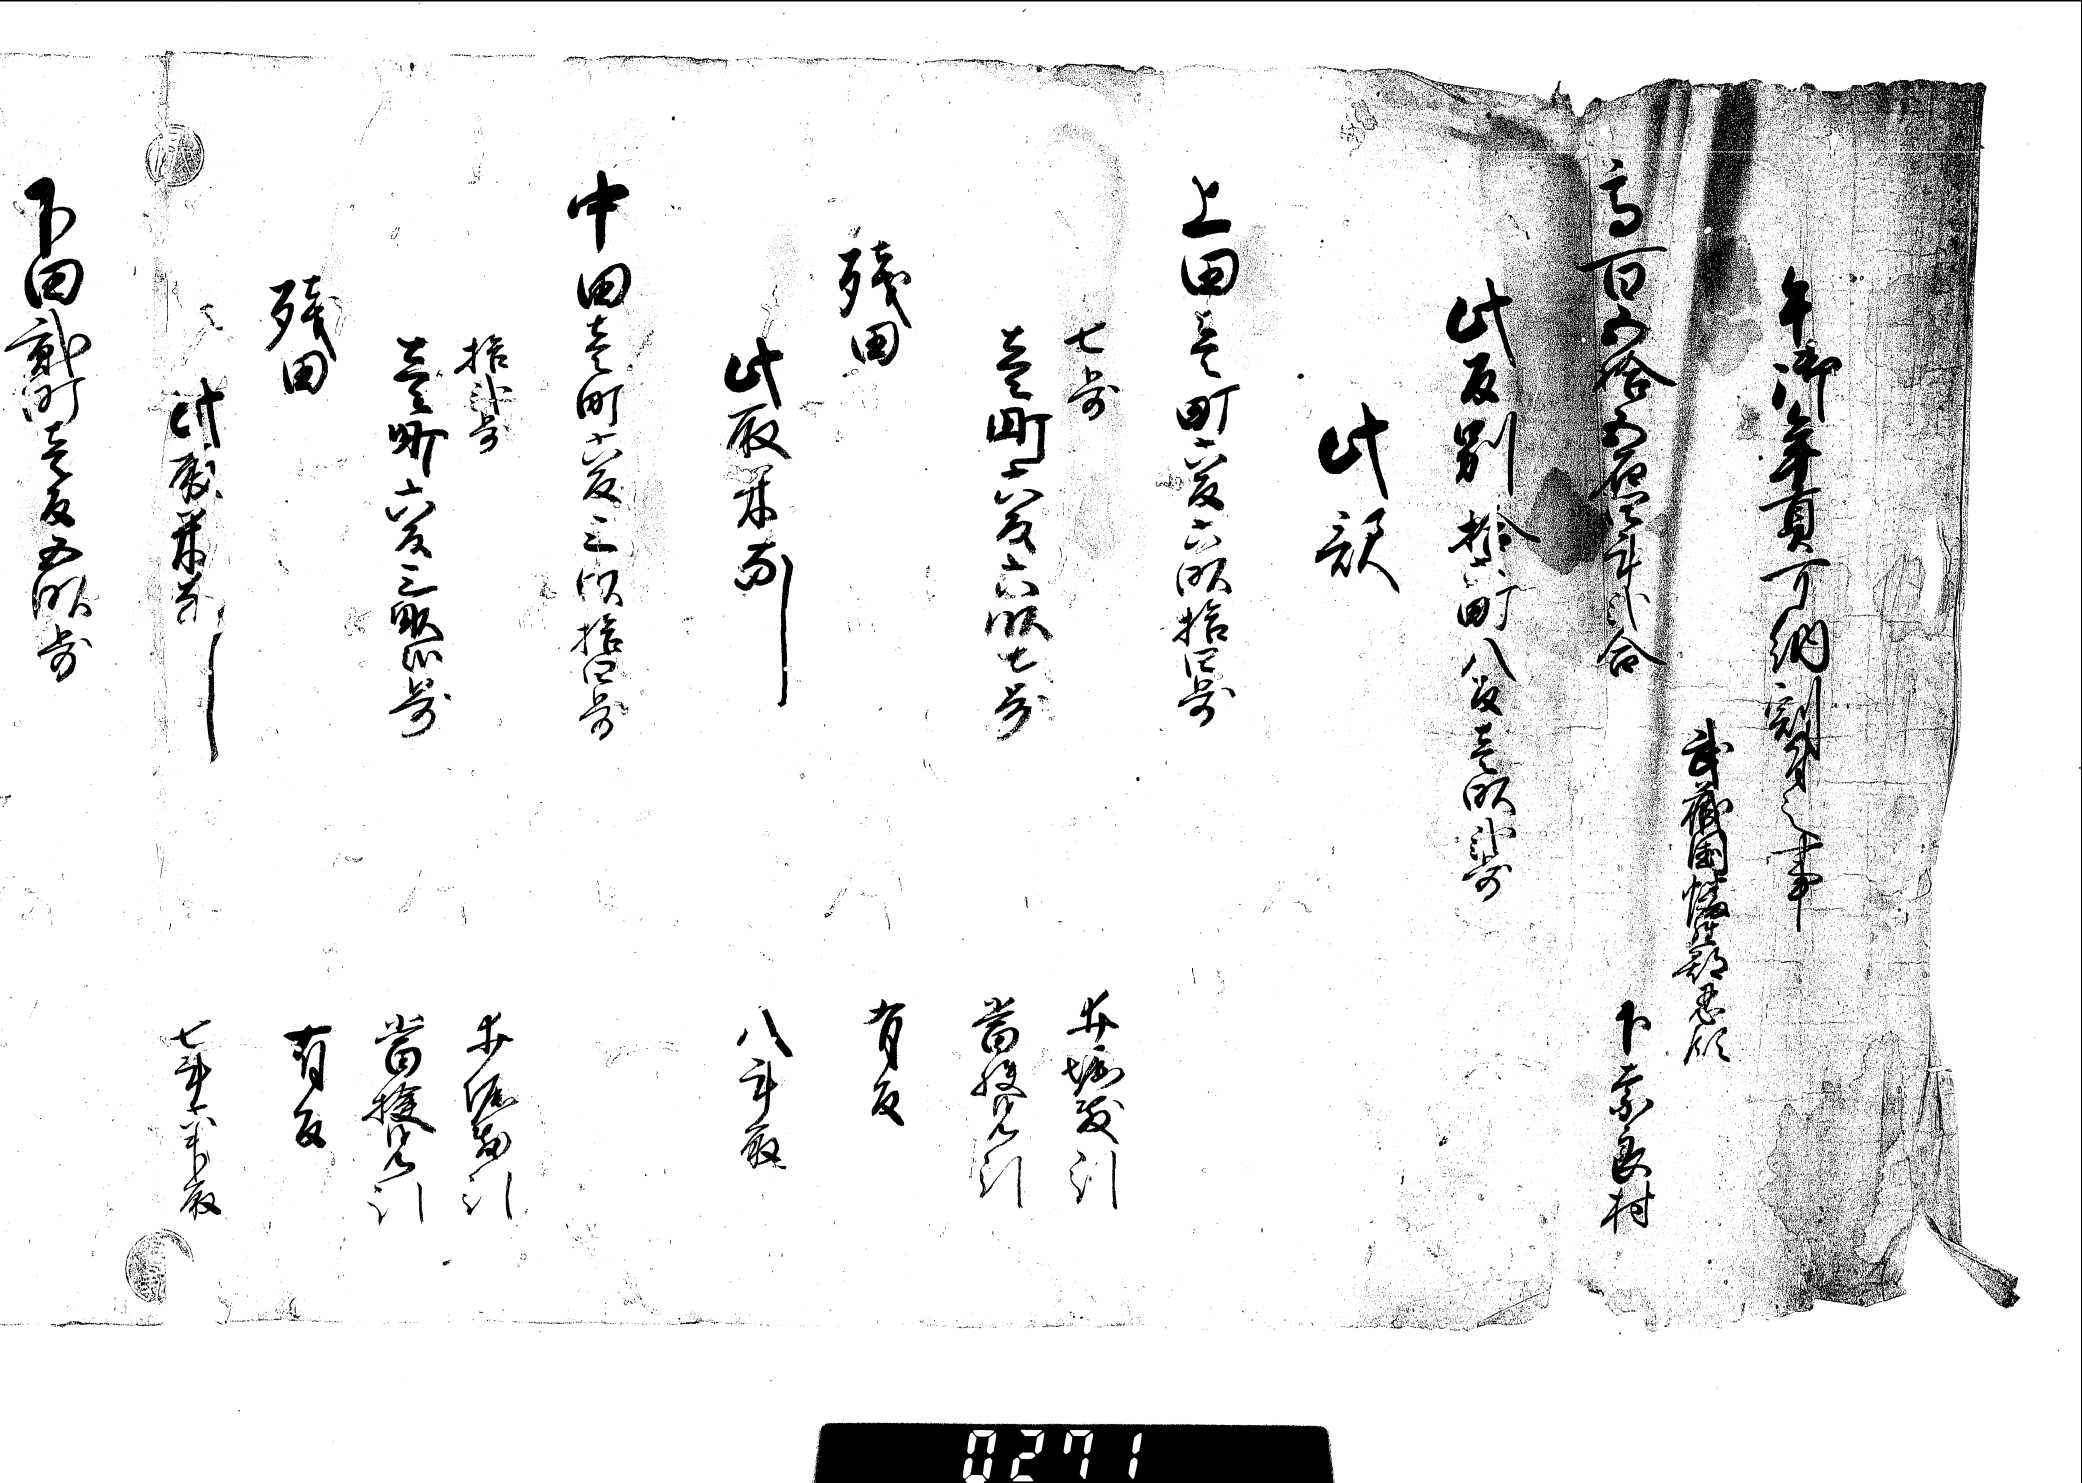 午御年貢可納割付之事
武蔵国幡羅郡忍領
下奈良村
高百五拾五石四斗弐合
此反別拾町八反壱畝弐歩
此訳
上田壱町六反六畝拾四歩
七歩 井堀敷引
壱町六反六畝七歩 当検見引
残田 有反
此取米而 八斗取
中田壱町六反三畝拾四歩
拾弐歩 井堀敷引
壱町六反三畝弐歩 当検見引
残田 有反
此取米而 七斗六升取
下田弐町壱反五畝歩
0271